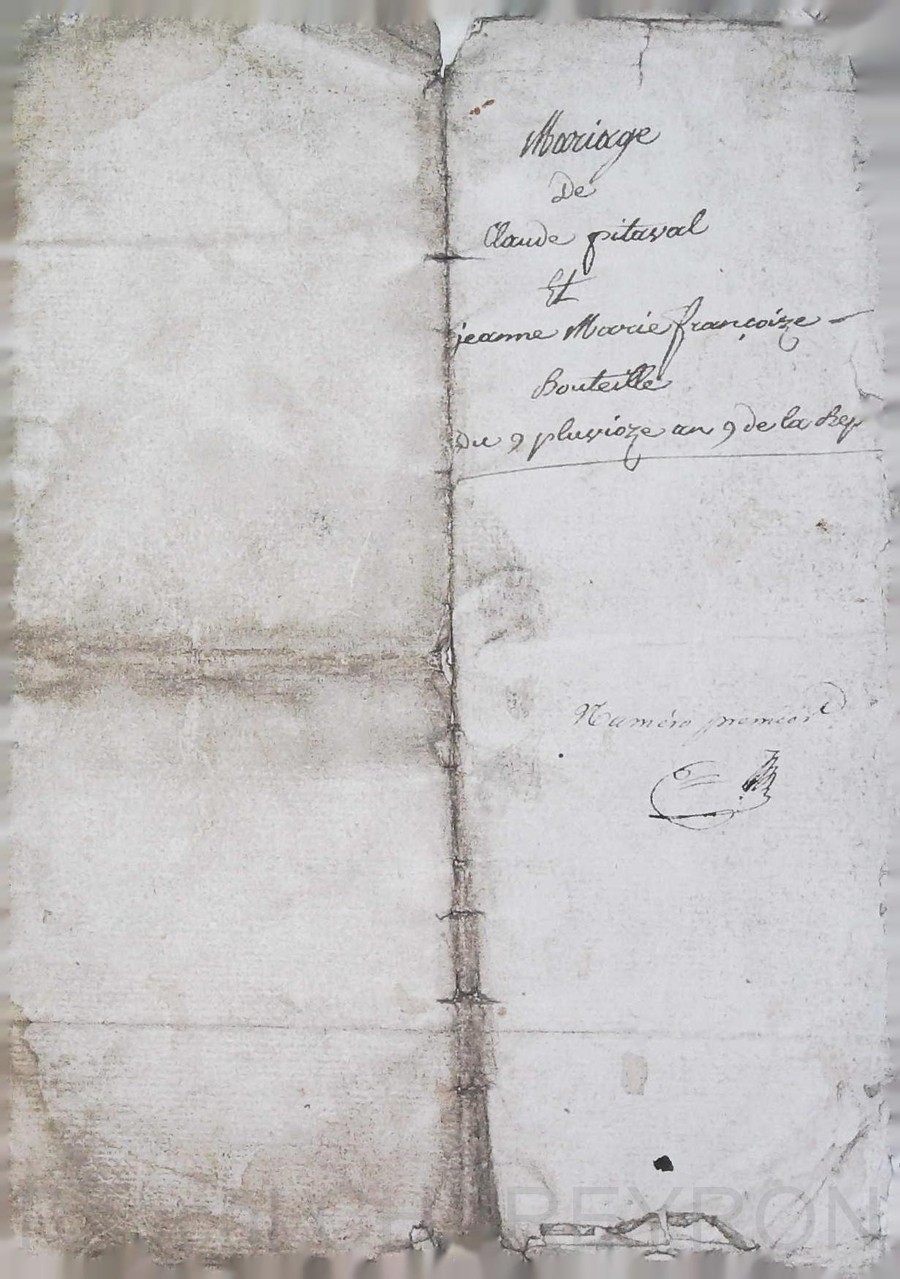 Mariage
De
Claude pitaval
Et
jeanne Marie françoize
Bouteille
Du 9 pluvioze an 9 de la Rep
Numéro premier
PEYRON